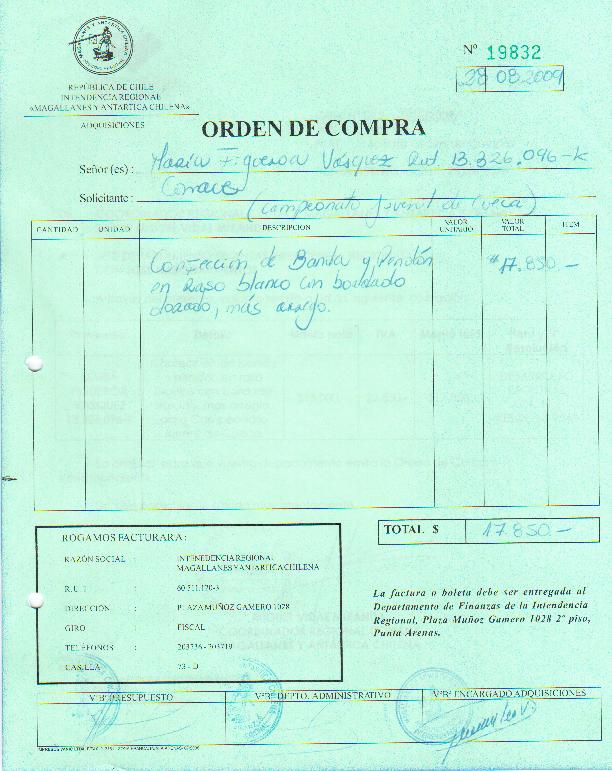 Nº 19832
28 08 2009
REPÚBLICA DE CHILE
INTENDENCIA REGIONAL
«MAGALLANES Y ANTARTICA CHILENA»
ADQUISICIONES
ORDEN DE COMPRA
Señor (es) : María Figueroa Vásquez Rut. 13.326.096-K
Solicitante :
(Campeonato Juvenil de Cueca)
CANTIDAD UNIDAD DESCRIPCION VALOR UNITARIO VALOR TOTAL ITEM
Confección de Banda y Pendón $17.850.-
en Raso blanco con bordado
dorado, más arreglo.
TOTAL $ 17.850.-
ROGAMOS FACTURAR A :
RAZÓN SOCIAL : INTENEDENCIA REGIONAL
MAGALLANES Y ANTARTICA CHILENA
R.U.T 60.511.120-3
DIRECCIÓN : PLAZA MUÑOZ GAMERO 1028
GIRO : FISCAL
TELÉFONOS : 203736 - 203719
CASILLA 73 - D
La factura o boleta debe ser entregada al
Departamento de Finanzas de la Intendencia
Regional, Plaza Muñoz Gamero 1028 2º piso,
Punta Arenas.
VºBº PRESUPUESTO VºBº DEPTO. ADMINISTRATIVO VºBº ENCARGADO ADQUISICIONES